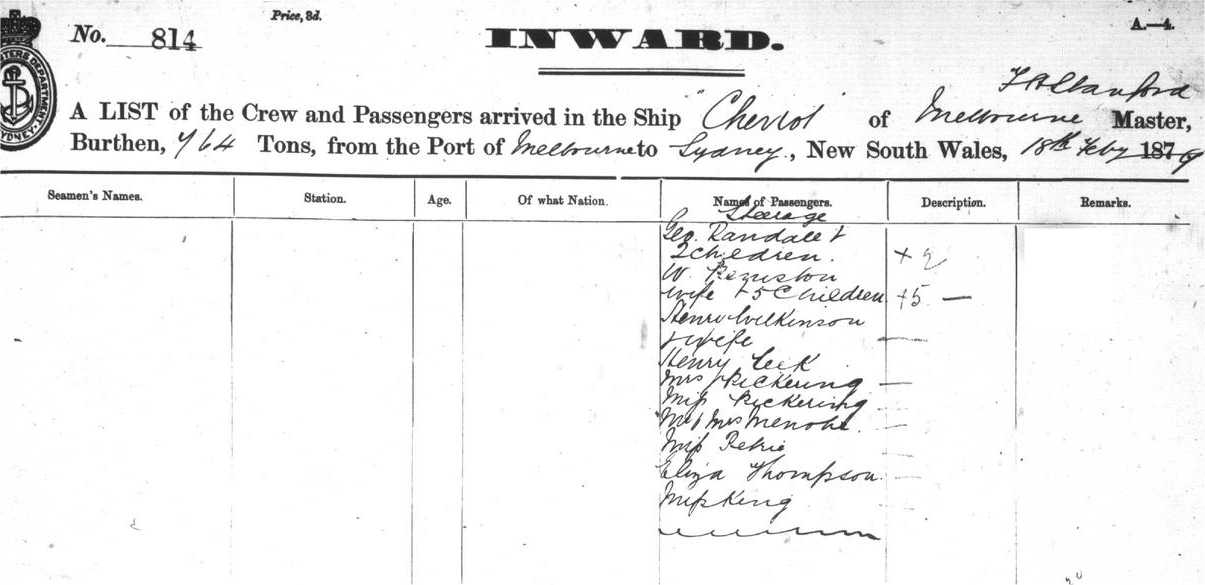 Price, 3d.
A.—4.
No. 814
INWARD.
A LIST of the Crew and Passengers arrived in the Ship "Cheviot" of Melbourne Master,
Burthen, 764 Tons, from the Port of Melbourne to Sydney, New South Wales, 18th Feby 1879
Seamen's Names. Station. Age. Of what Nation. Names of Passengers. Description. Remarks.
Steerage
Geo. Randall +
2 children. + 2
W.
wife + 5 Children +5 —
Henri Wilkinson
+ wife —
Henry
Mrs Pickering —
Miss Pickering
Mr & Mrs
Miss Petrie
Eliza Thompson. —
Miss King